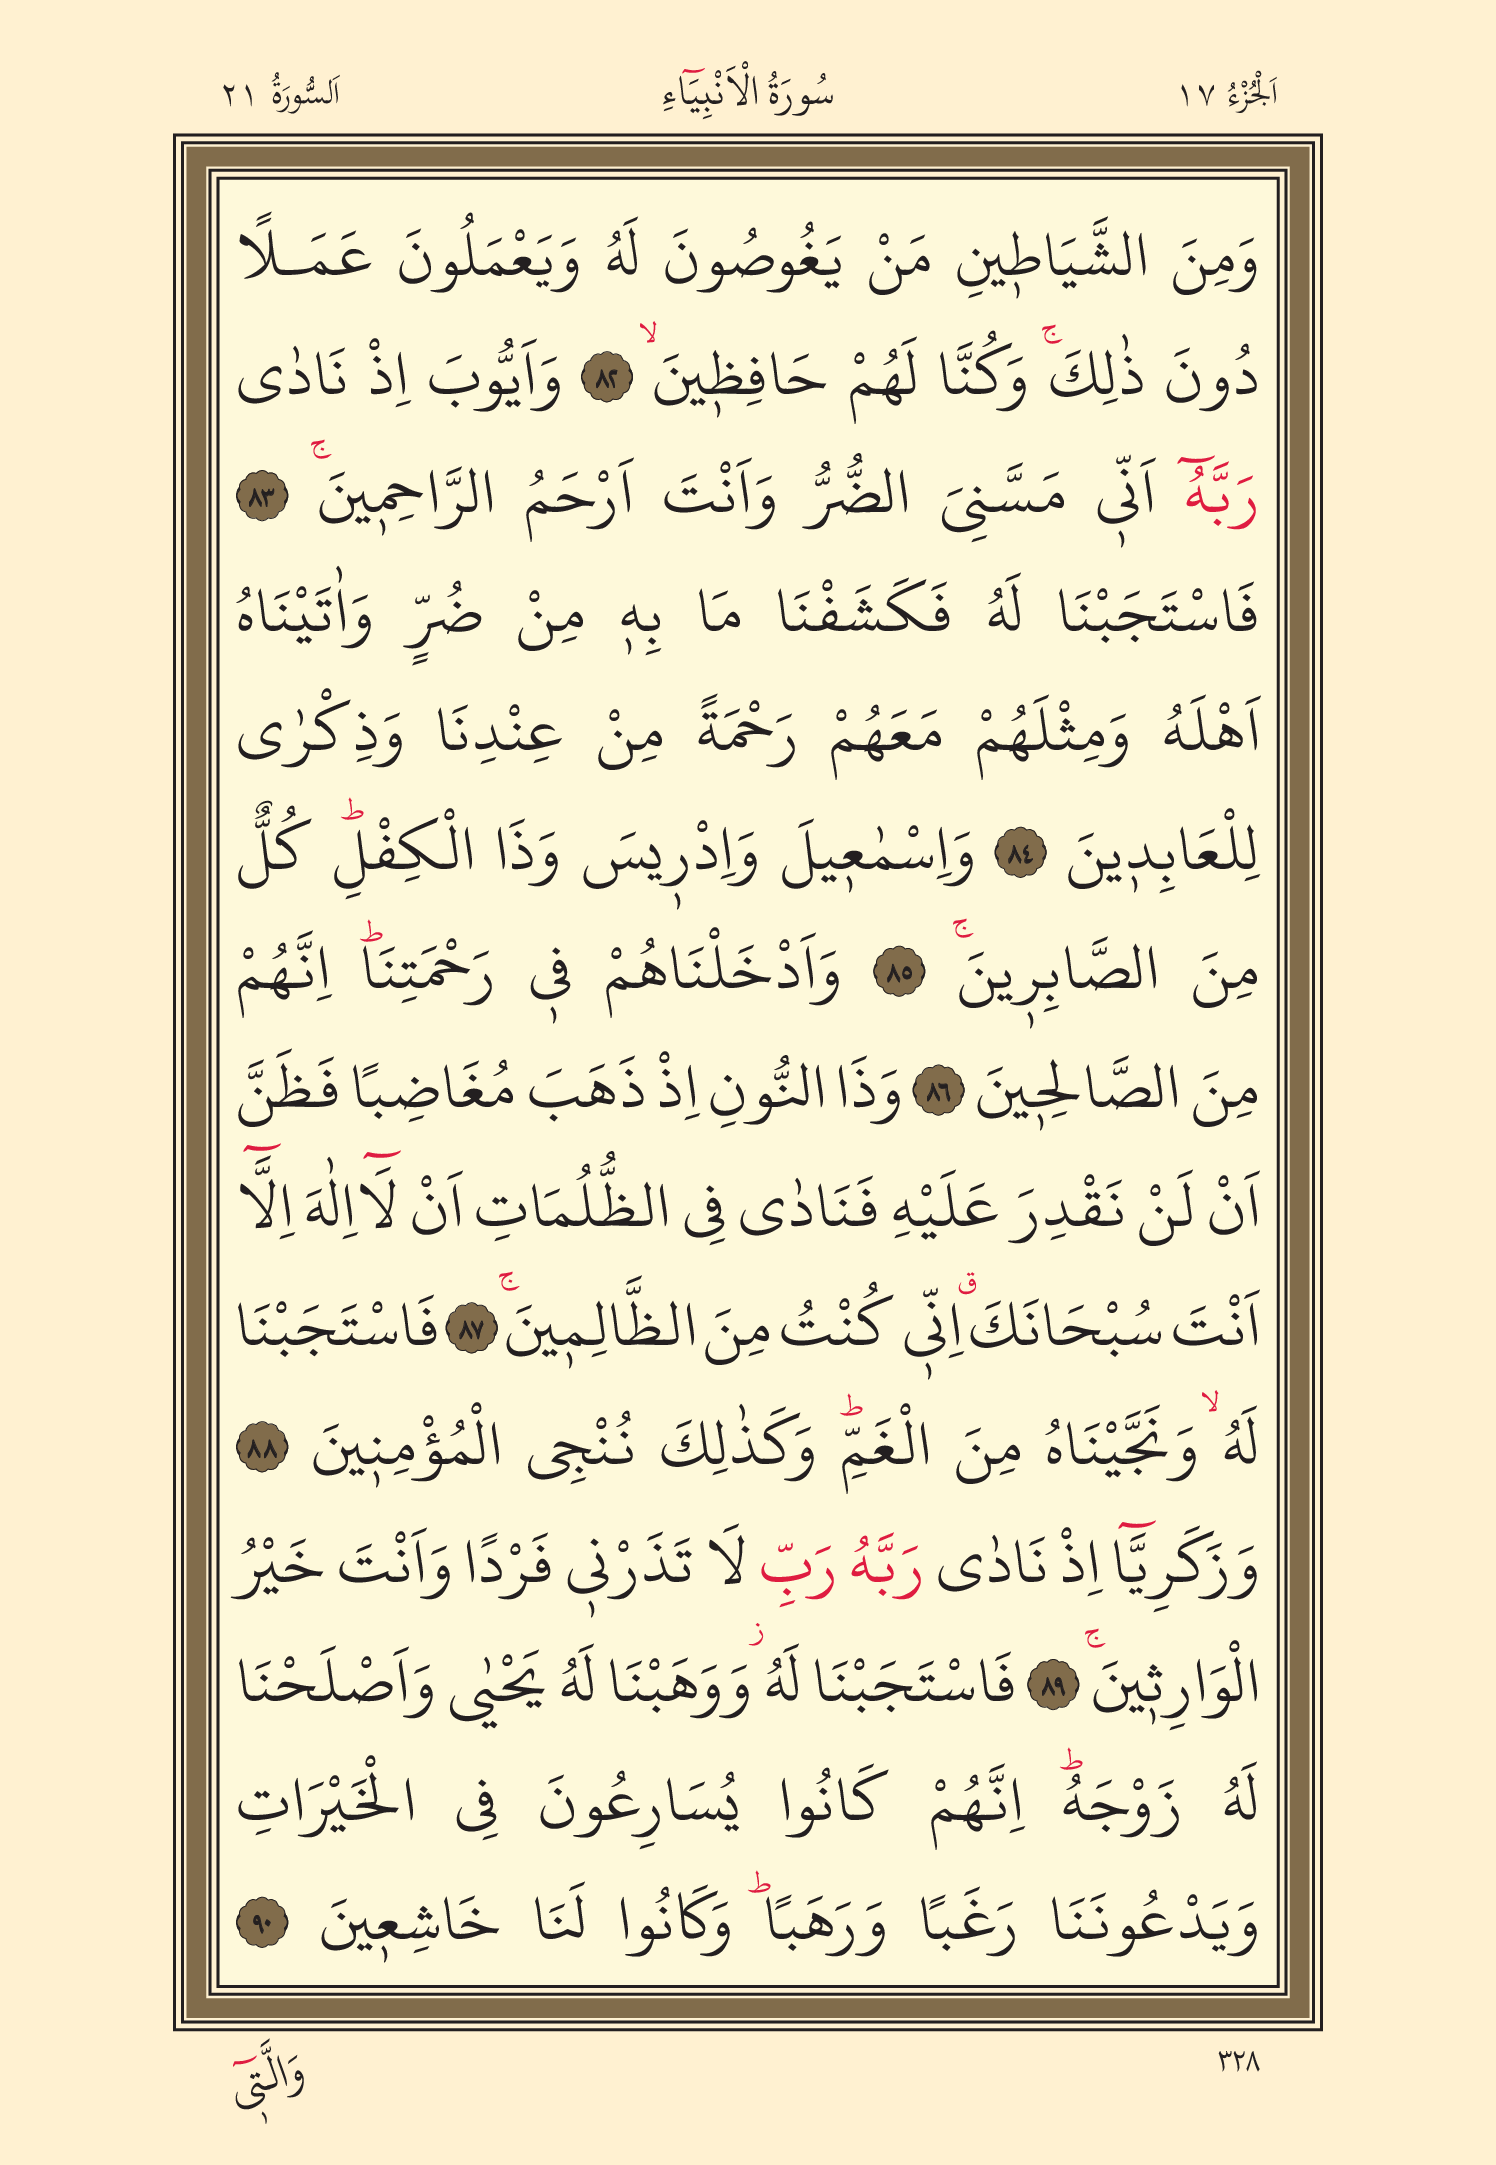 اَلْجُزْءُ ١٧ سُورَةُ الْاَنْبِيَٓاءِ اَلسُّورَةُ ٢١
وَمِنَ الشَّيَاط۪ينِ مَنْ يَغُوصُونَ لَهُ وَيَعْمَلُونَ عَمَــلًا
دُونَ ذٰلِكَۚ وَكُنَّا لَهُمْ حَافِظ۪ينَۙ ﴿٨٢﴾ وَاَيُّوبَ اِذْ نَادٰى
رَبَّهُٓ اَنّ۪ي مَسَّنِيَ الضُّرُّ وَاَنْتَ اَرْحَمُ الرَّاحِم۪ينَۚ ﴿٨٣﴾
فَاسْتَجَبْنَا لَهُ فَكَشَفْنَا مَا بِه۪ مِنْ ضُرٍّ وَاٰتَيْنَاهُ
اَهْلَهُ وَمِثْلَهُمْ مَعَهُمْ رَحْمَةً مِنْ عِنْدِنَا وَذِكْرٰى
لِلْعَابِد۪ينَ ﴿٨٤﴾ وَاِسْمٰع۪يلَ وَاِدْر۪يسَ وَذَا الْكِفْلِۜ كُلٌّ
مِنَ الصَّابِر۪ينَۚ ﴿٨٥﴾ وَاَدْخَلْنَاهُمْ ف۪ي رَحْمَتِنَاۜ اِنَّهُمْ
مِنَ الصَّالِح۪ينَ ﴿٨٦﴾ وَذَا النُّونِ اِذْ ذَهَبَ مُغَاضِبًا فَظَنَّ
اَنْ لَنْ نَقْدِرَ عَلَيْهِ فَنَادٰى فِي الظُّلُمَاتِ اَنْ لَٓا اِلٰهَ اِلَّٓا
اَنْتَ سُبْحَانَكَۗ اِنّ۪ي كُنْتُ مِنَ الظَّالِم۪ينَۚ ﴿٨٧﴾ فَاسْتَجَبْنَا
لَهُۙ وَنَجَّيْنَاهُ مِنَ الْغَمِّۜ وَكَذٰلِكَ نُنْجِي الْمُؤْمِن۪ينَ ﴿٨٨﴾
وَزَكَرِيَّٓا اِذْ نَادٰى رَبَّهُ رَبِّ لَا تَذَرْن۪ي فَرْدًا وَاَنْتَ خَيْرُ
الْوَارِث۪ينَۚ ﴿٨٩﴾ فَاسْتَجَبْنَا لَهُۘ وَوَهَبْنَا لَهُ يَحْيٰى وَاَصْلَحْنَا
لَهُ زَوْجَهُۜ اِنَّهُمْ كَانُوا يُسَارِعُونَ فِي الْخَيْرَاتِ
وَيَدْعُونَنَا رَغَبًا وَرَهَبًاۜ وَكَانُوا لَنَا خَاشِع۪ينَ ﴿٩٠﴾
٣٢٨ وَالَّت۪ٓي